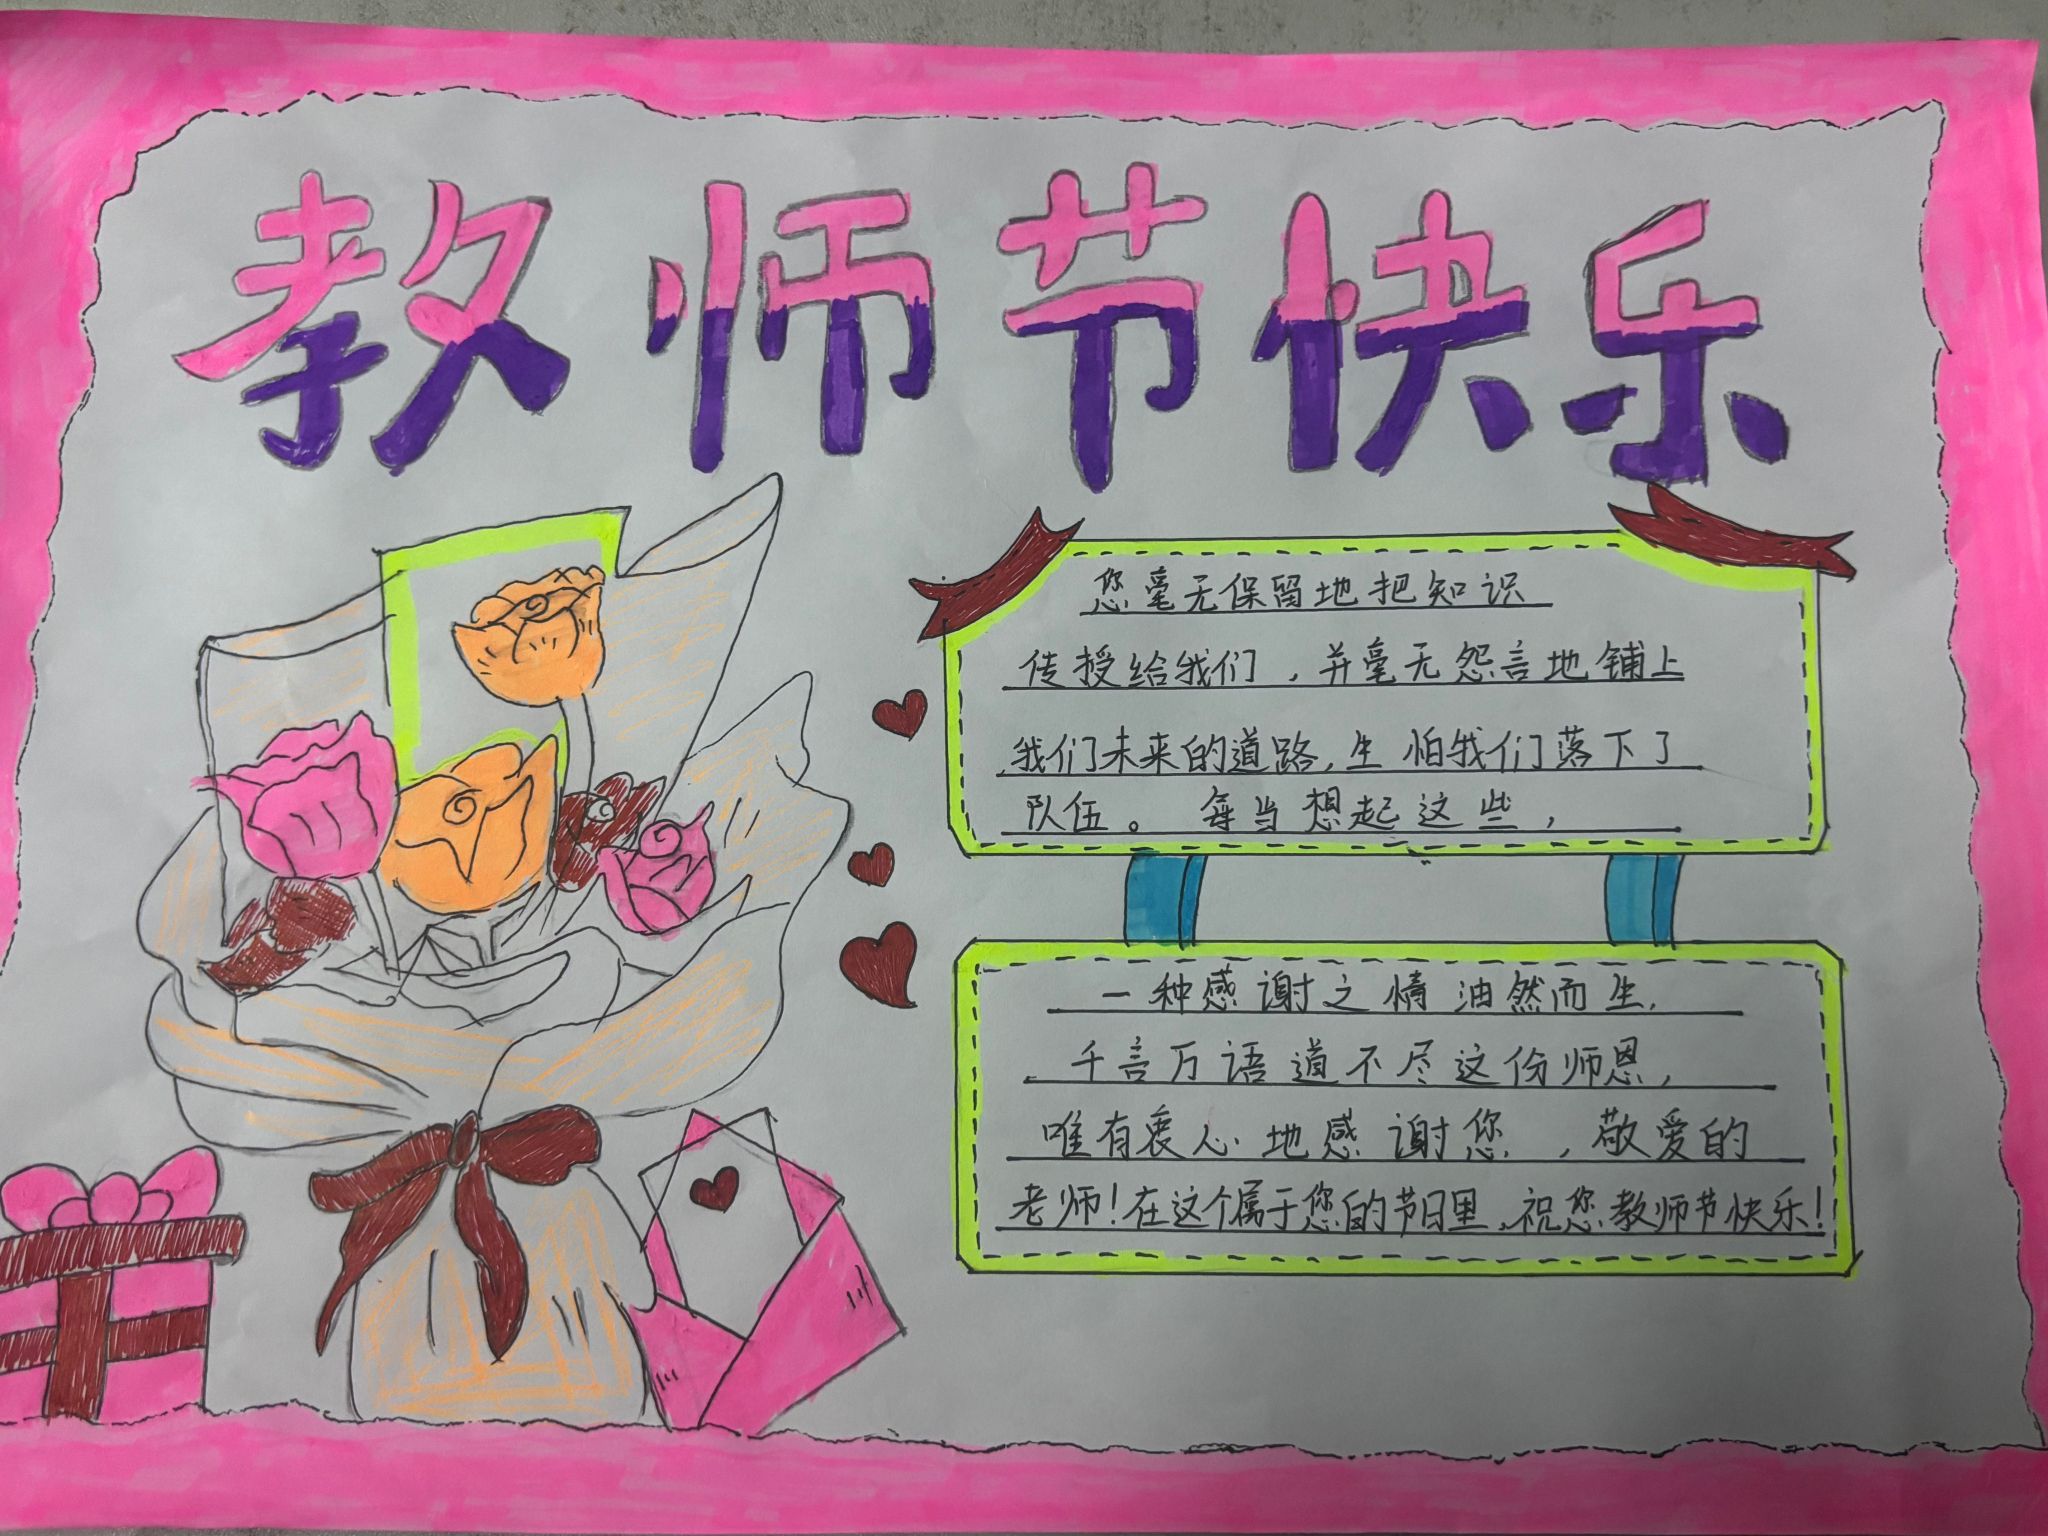 教师节快乐
您毫无保留地把知识
传授给我们，并毫无怨言地铺上
我们未来的道路，生怕我们落下了
队伍。每当想起这些，
一种感谢之情油然而生，
千言万语道不尽这份师恩，
唯有衷心地感谢您，敬爱的
老师！在这个属于您的节日里，祝您教师节快乐！